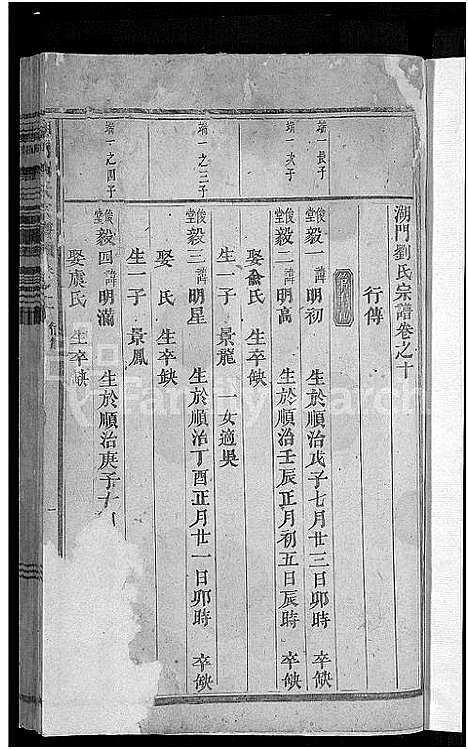 湖門劉氏宗譜卷之十
行傳
端一長子
俊堂 毅一 諱明初 生於順治戊子七月廿三日卯時 卒缺
端一次子
俊堂 毅二 諱明高 生於順治壬辰正月初五日辰時 卒缺
娶俞氏 生卒缺
生一子 景龍 一女適吳
端一之三子
俊堂 毅三 諱明星 生於順治丁酉正月廿一日卯時 卒缺
娶 氏 生卒缺
生一子 景鳳
端一之四子
俊堂 毅四 諱明滿 生於順治庚子十
娶虞氏 生卒缺